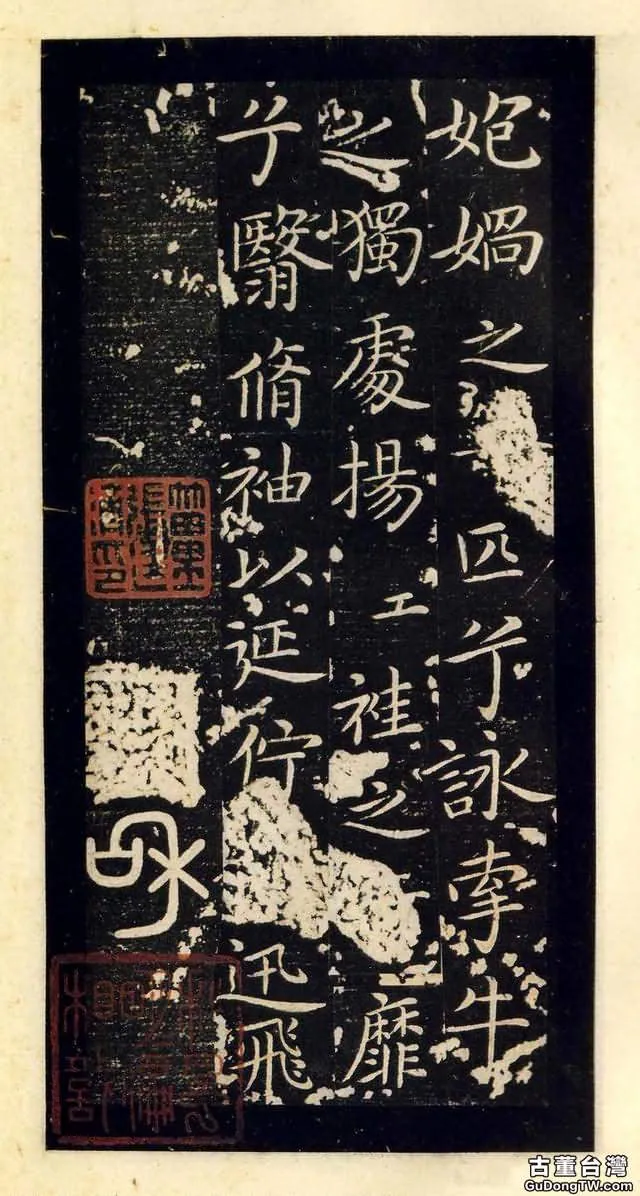 㚿媧之匹兮詠牽牛
之獨處揚袿之靡
兮翳脩袖以延佇迅飛
古董台灣
GuDongTW.com